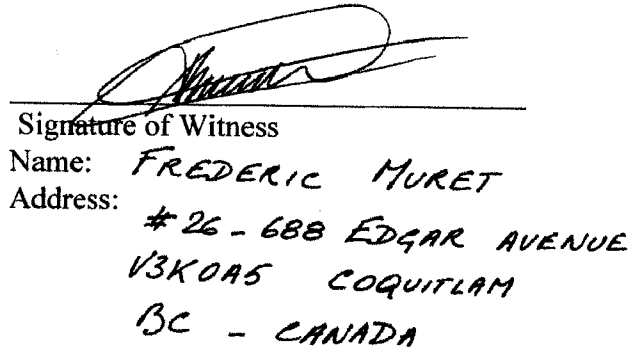 Signature of Witness
Name: FREDERIC MURET
Address:
#26-688 EDGAR AVENUE
V3K0A5 COQUITLAM
BC - CANADA